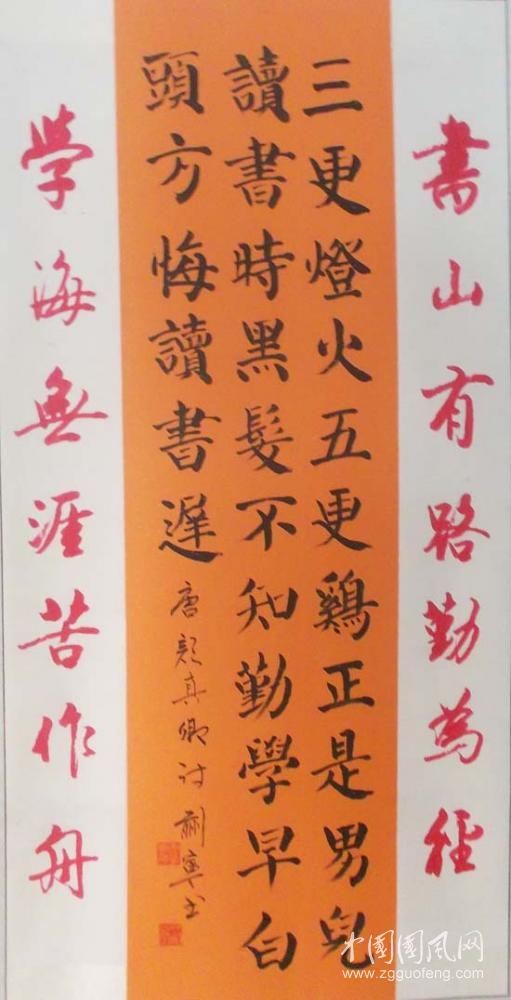 書山有路勤為徑
三更燈火五更鷄正是男兒
讀書時黑髮不知勤學早白
頭方悔讀書遲
唐顏真卿詩
学海無涯苦作舟
中國國风网
www.zgguofeng.com